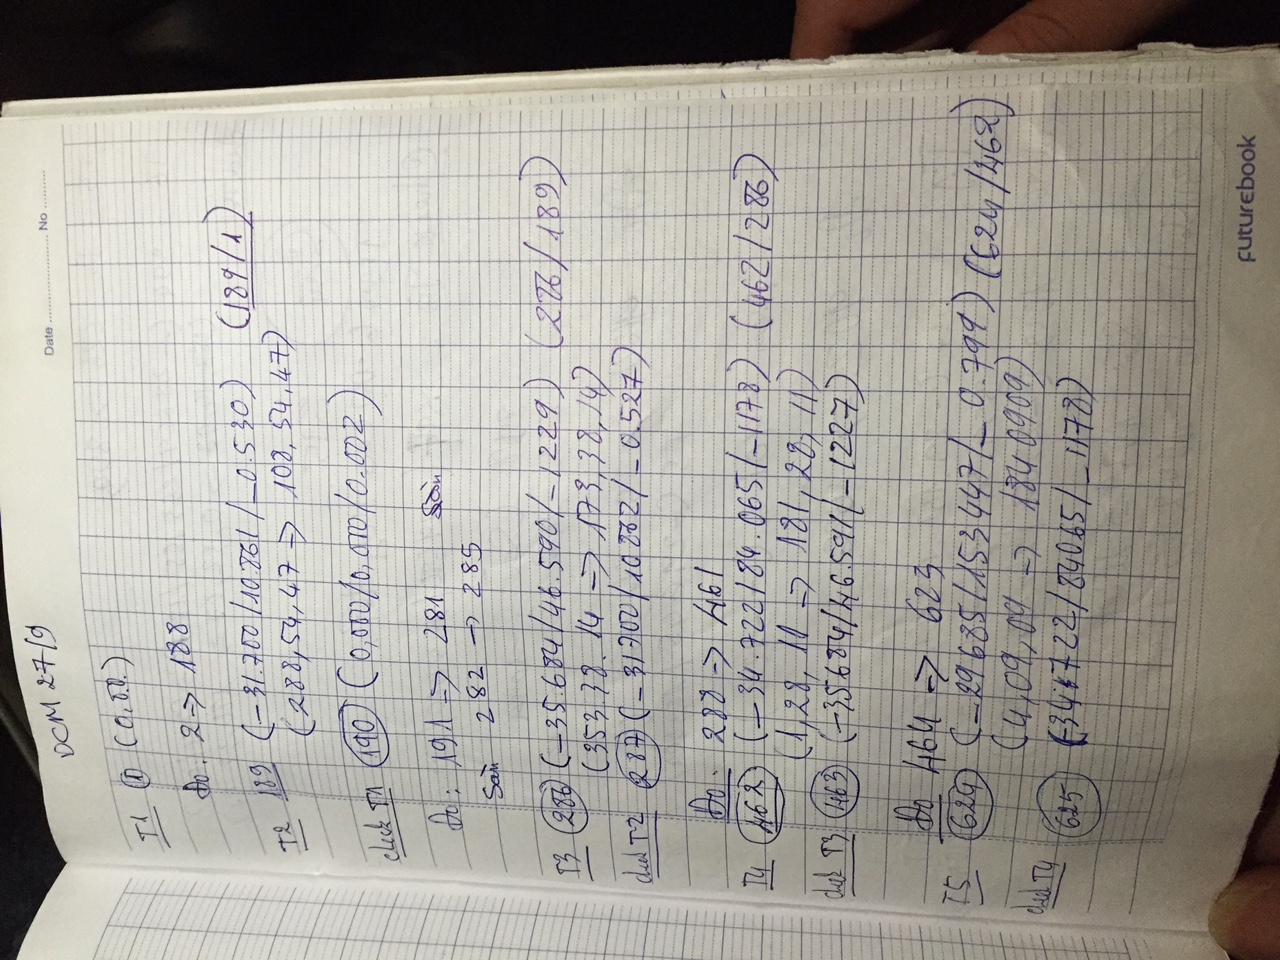 DCM 27/9
Date No
T1 1 (0,0.0.)
Đo. 2 → 188
T2 189 (-31.700/10.861/-0.530) (189/1)
(288,54,47 → 108,54,47)
check T1 190 (0,000/0,000/0.002)
Đo: 191 → 281
Sàn 282 → 285
T3 286 (-35.684/46.590/-1229) (286/189)
(353.38.14 → 173,38,14)
check T2 287 (-31700/10862/-0.527)
Đo. 288 → 461
T4 462 (-34.722/84.065/-1178) (462/286)
(1,28,11 → 181,28,11)
check T3 463 (-35684/46.591/-1227)
Đo 464 → 623
T5 624 (-29685/153447/-0.799) (624/462)
(4,09,09 → 1840909)
check T4
625 (-34722/84065/-1178)
FUTUREBOOK